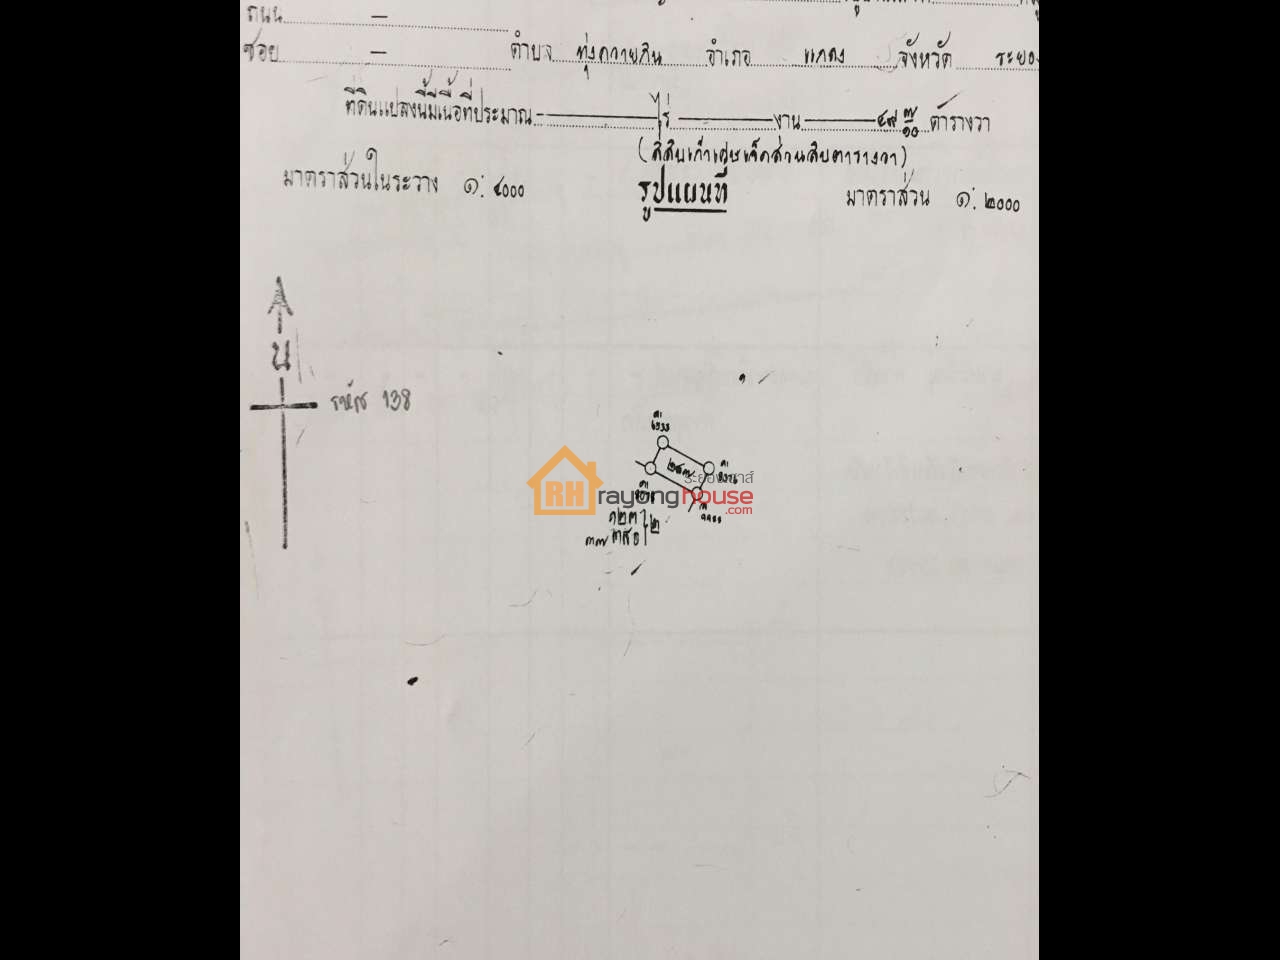 ถนน –
ซอย – ตำบล ทุ่งควายกิน อำเภอ แกลง จังหวัด ระยอง
ที่ดินแปลงนี้มีเนื้อที่ประมาณ – ไร่ งาน ๔๙ ๗/๑๐ ตารางวา
(สี่สิบเก้าเศษเจ็ดส่วนสิบตารางวา)
มาตราส่วนในระวาง ๑:๔๐๐๐ รูปแผนที่ มาตราส่วน ๑:๒๐๐๐
น
รหัส 138
RH
ระยองเฮาส์
rayonghouse
.com
๒